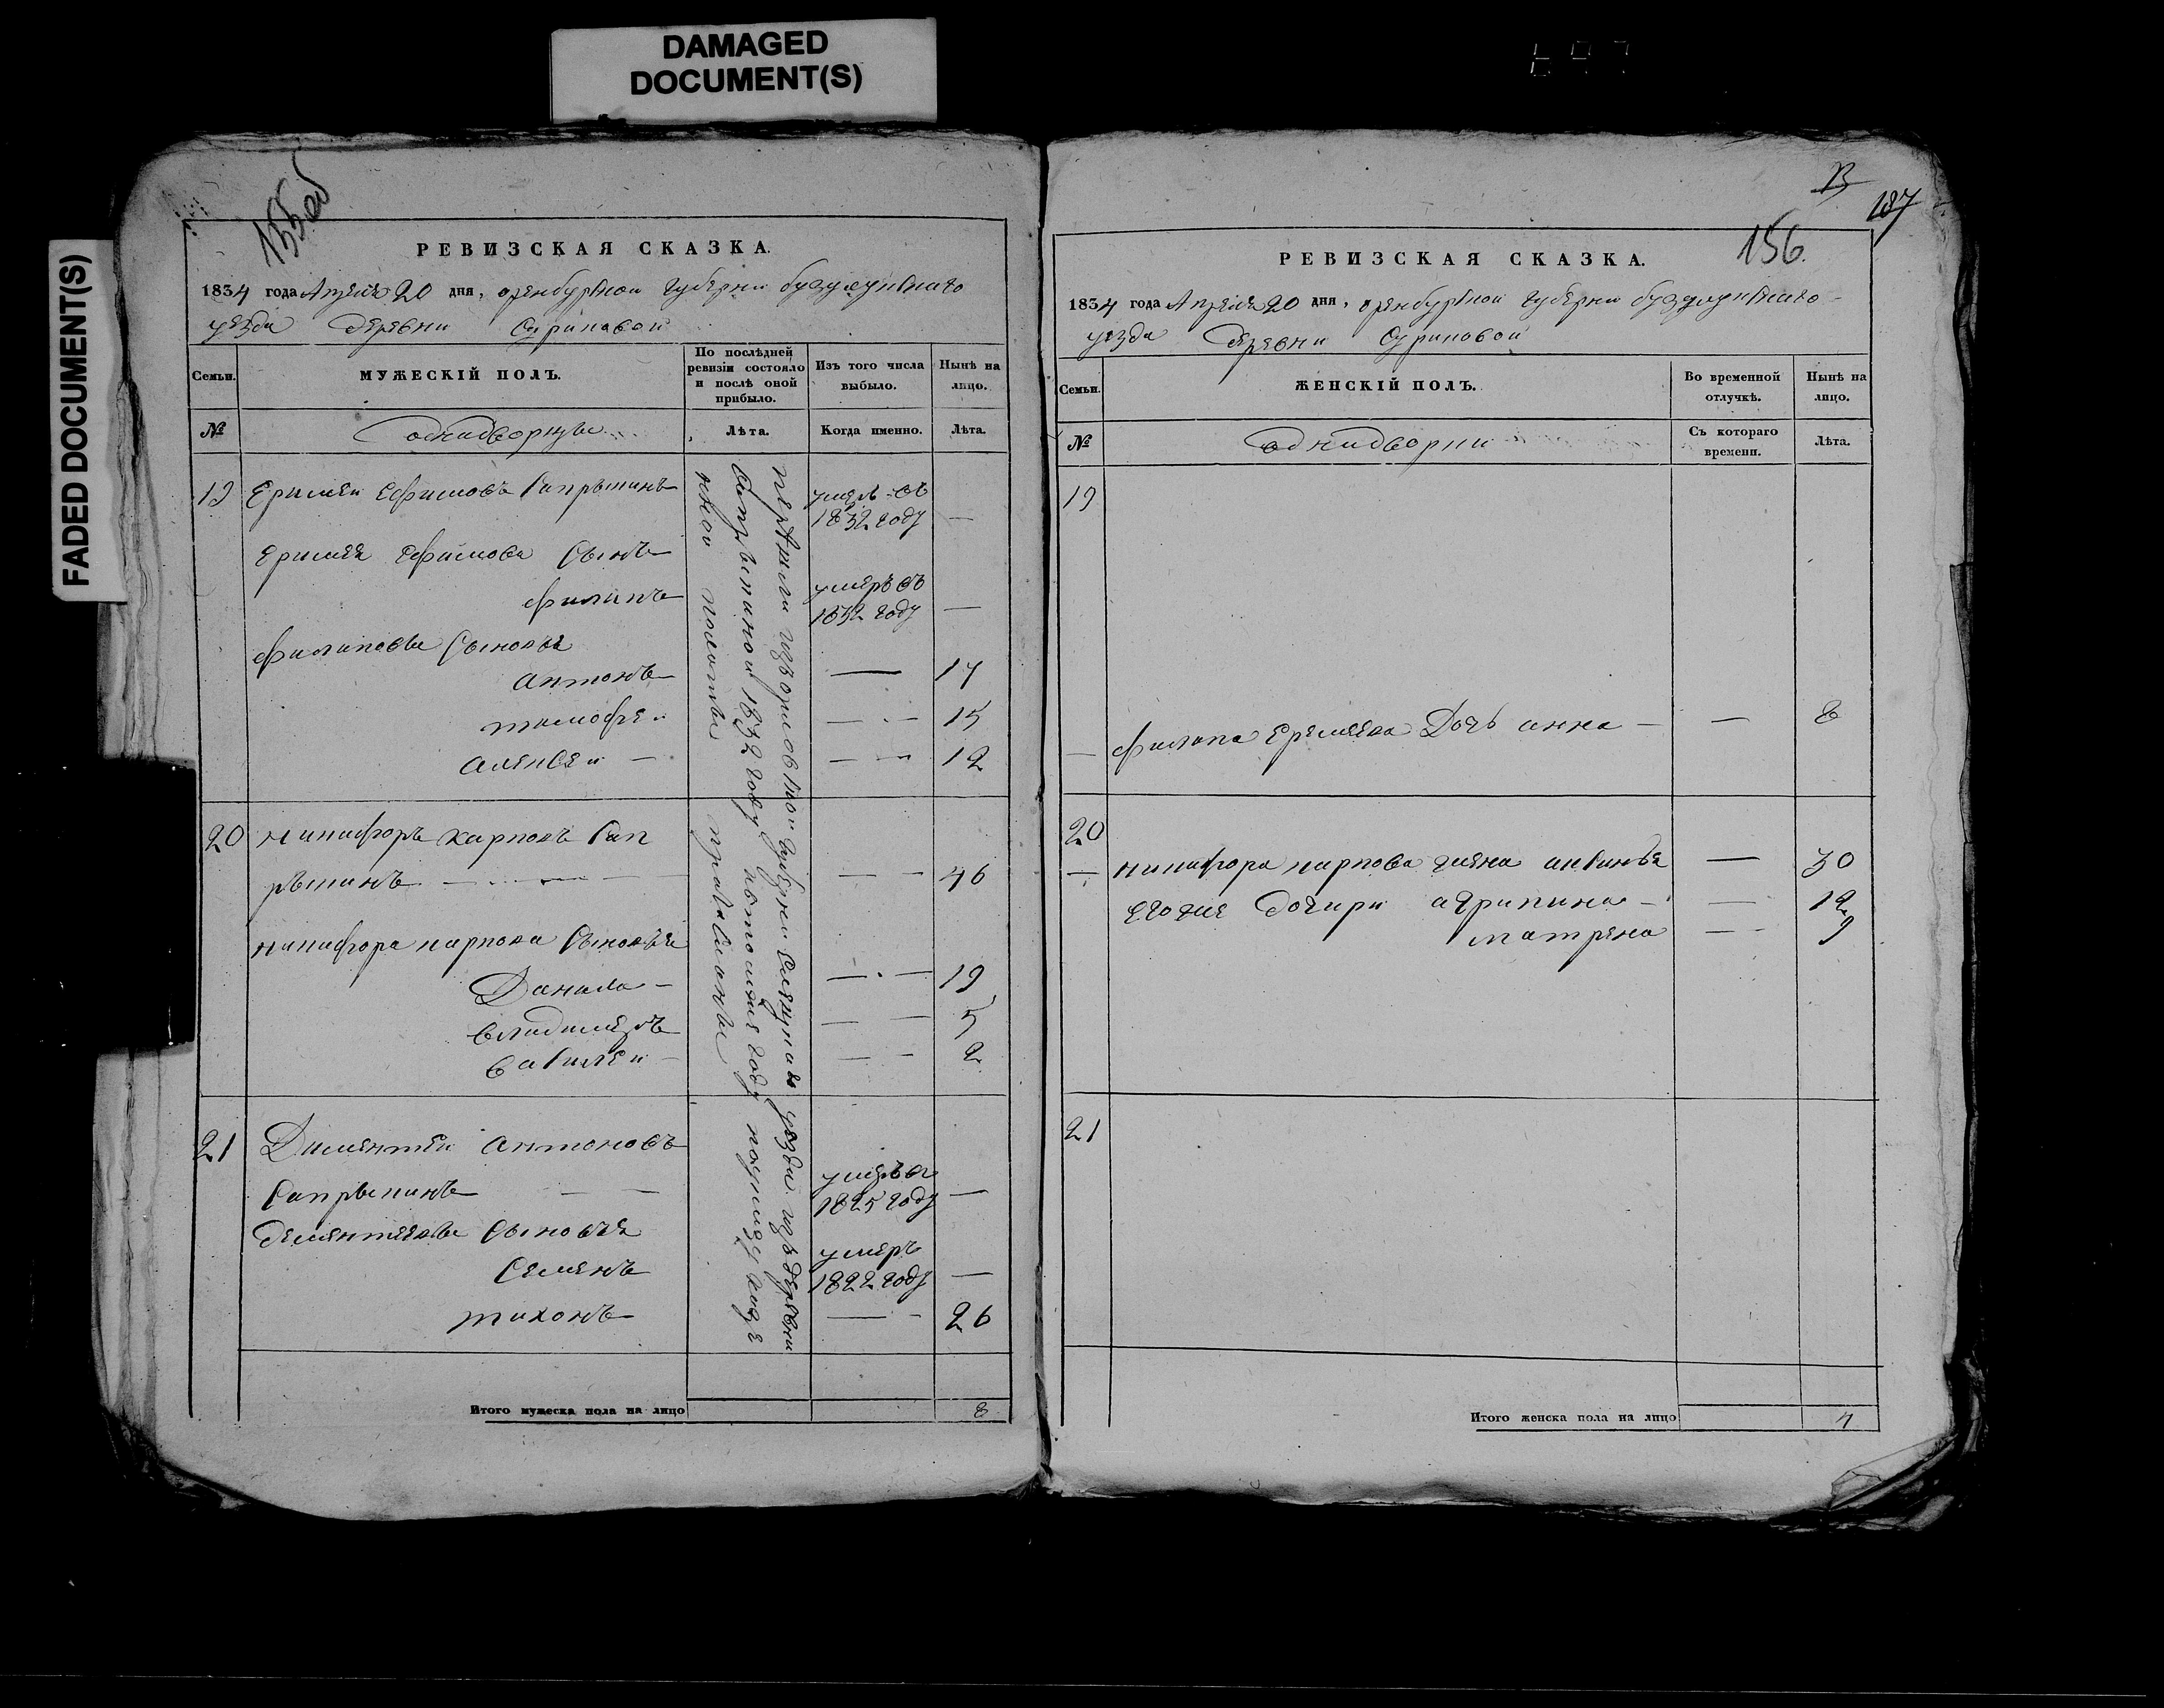 DAMAGED
DOCUMENT(S)
FADED DOCUMENT(S)
155об
РЕВИЗСКАЯ СКАЗКА.
1834 года Апреля 20 дня, оренбургской губернии бузулуцкаго
уезда деревни Суриковой
Семьи.
МУЖЕСКІЙ ПОЛЪ.
По послѣдней
ревизіи состояло
и послѣ оной
прибыло.
Изъ того числа
выбыло.
Нынѣ на
лицо.
№
однадворцы
Лѣта.
Когда именно.
Лѣта.
19 Еримеи Ефимовъ Сапрыкинъ
умеръ въ
1832 году —
еримея Ефимова Сынъ
филипъ
умеръ въ
1832 году —
филиповы Сыновья
антонъ — 17
тимофеи — 15
алексеи — 12
20 никифоръ карповъ Сап
рыкинъ — 46
никифора карпова Сыновья
Данила — 19
владимеръ — 5
василеи — 2
21 Дементеи антоновъ
Сапрыкинъ
умеръ въ
1825 году —
дементеевы Сыновья
Семенъ
умеръ
1822 году —
тихонъ — 26
Итого мужеска пола на лицо 8
187
156.
РЕВИЗСКАЯ СКАЗКА.
1834 года Апреля 20 дня, оренбургской губернии бузулуцкаго
уезда Деревни Суриковой
Семьи.
ЖЕНСКІЙ ПОЛЪ.
Во временной
отлучкѣ.
Нынѣ на
лицо.
№
однадворки
Съ котораго
времени.
Лѣта.
19
— филипа Еремеева Дочь анна — 8
20
— никифора карпова жена аксинья — 30
Егоже дочери агрипина — 12
матрена — 9
21
Итого женска пола на лицо 4